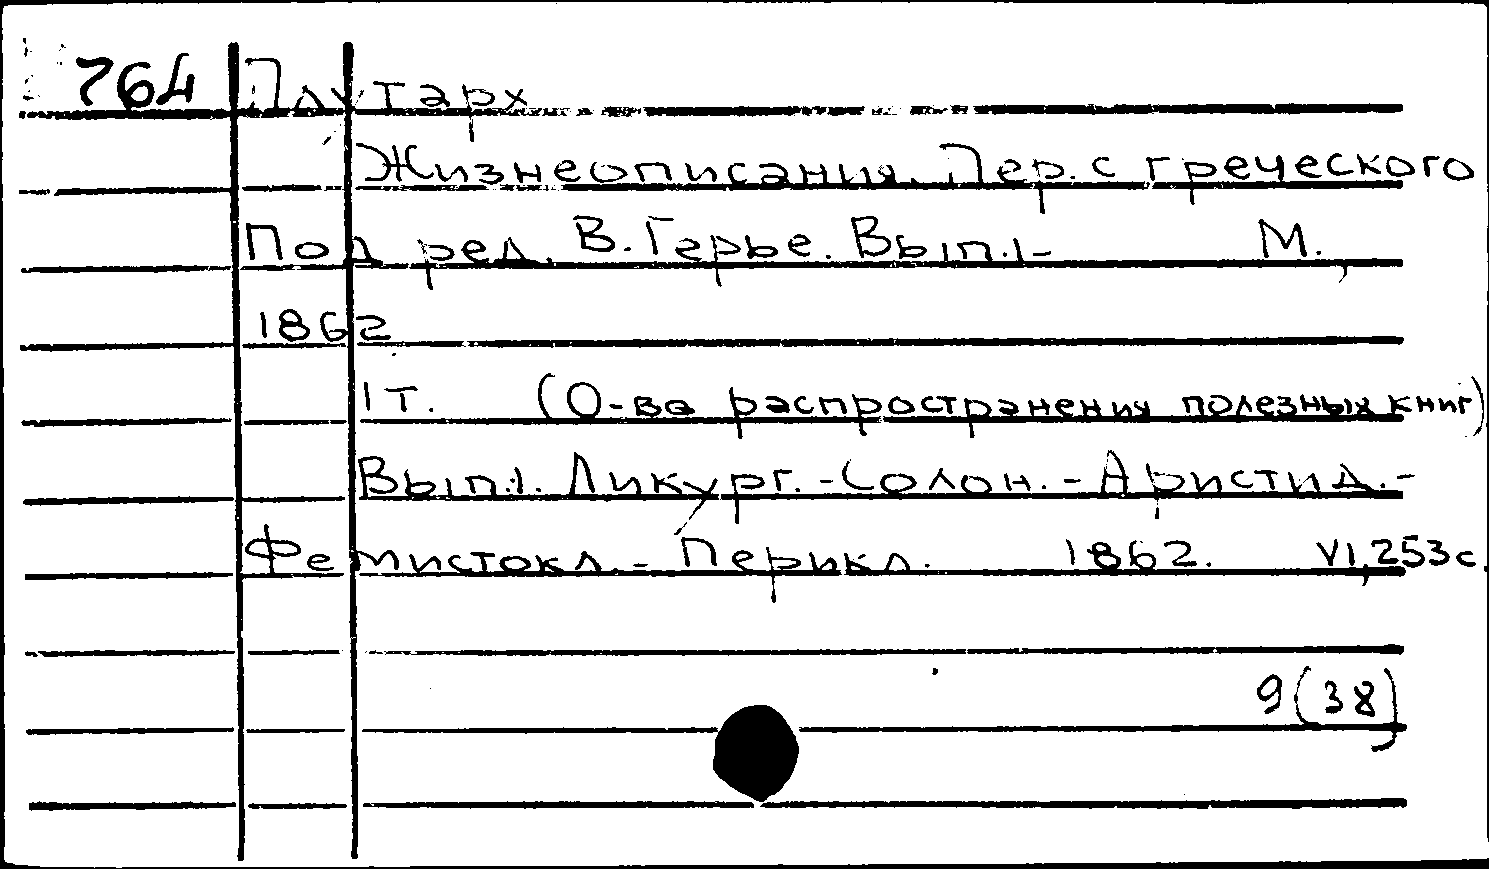 764 Плутарх
Жизнеописания. Пер. с греческого
Под ред. В. Герье. Вып.1- М.,
1862
1 т. (О-во распространения полезных книг)
Вып.1. Ликург.-Солон.-Аристид.-
Фемистокл.-Перикл. 1862. VI,253с.
9(38)